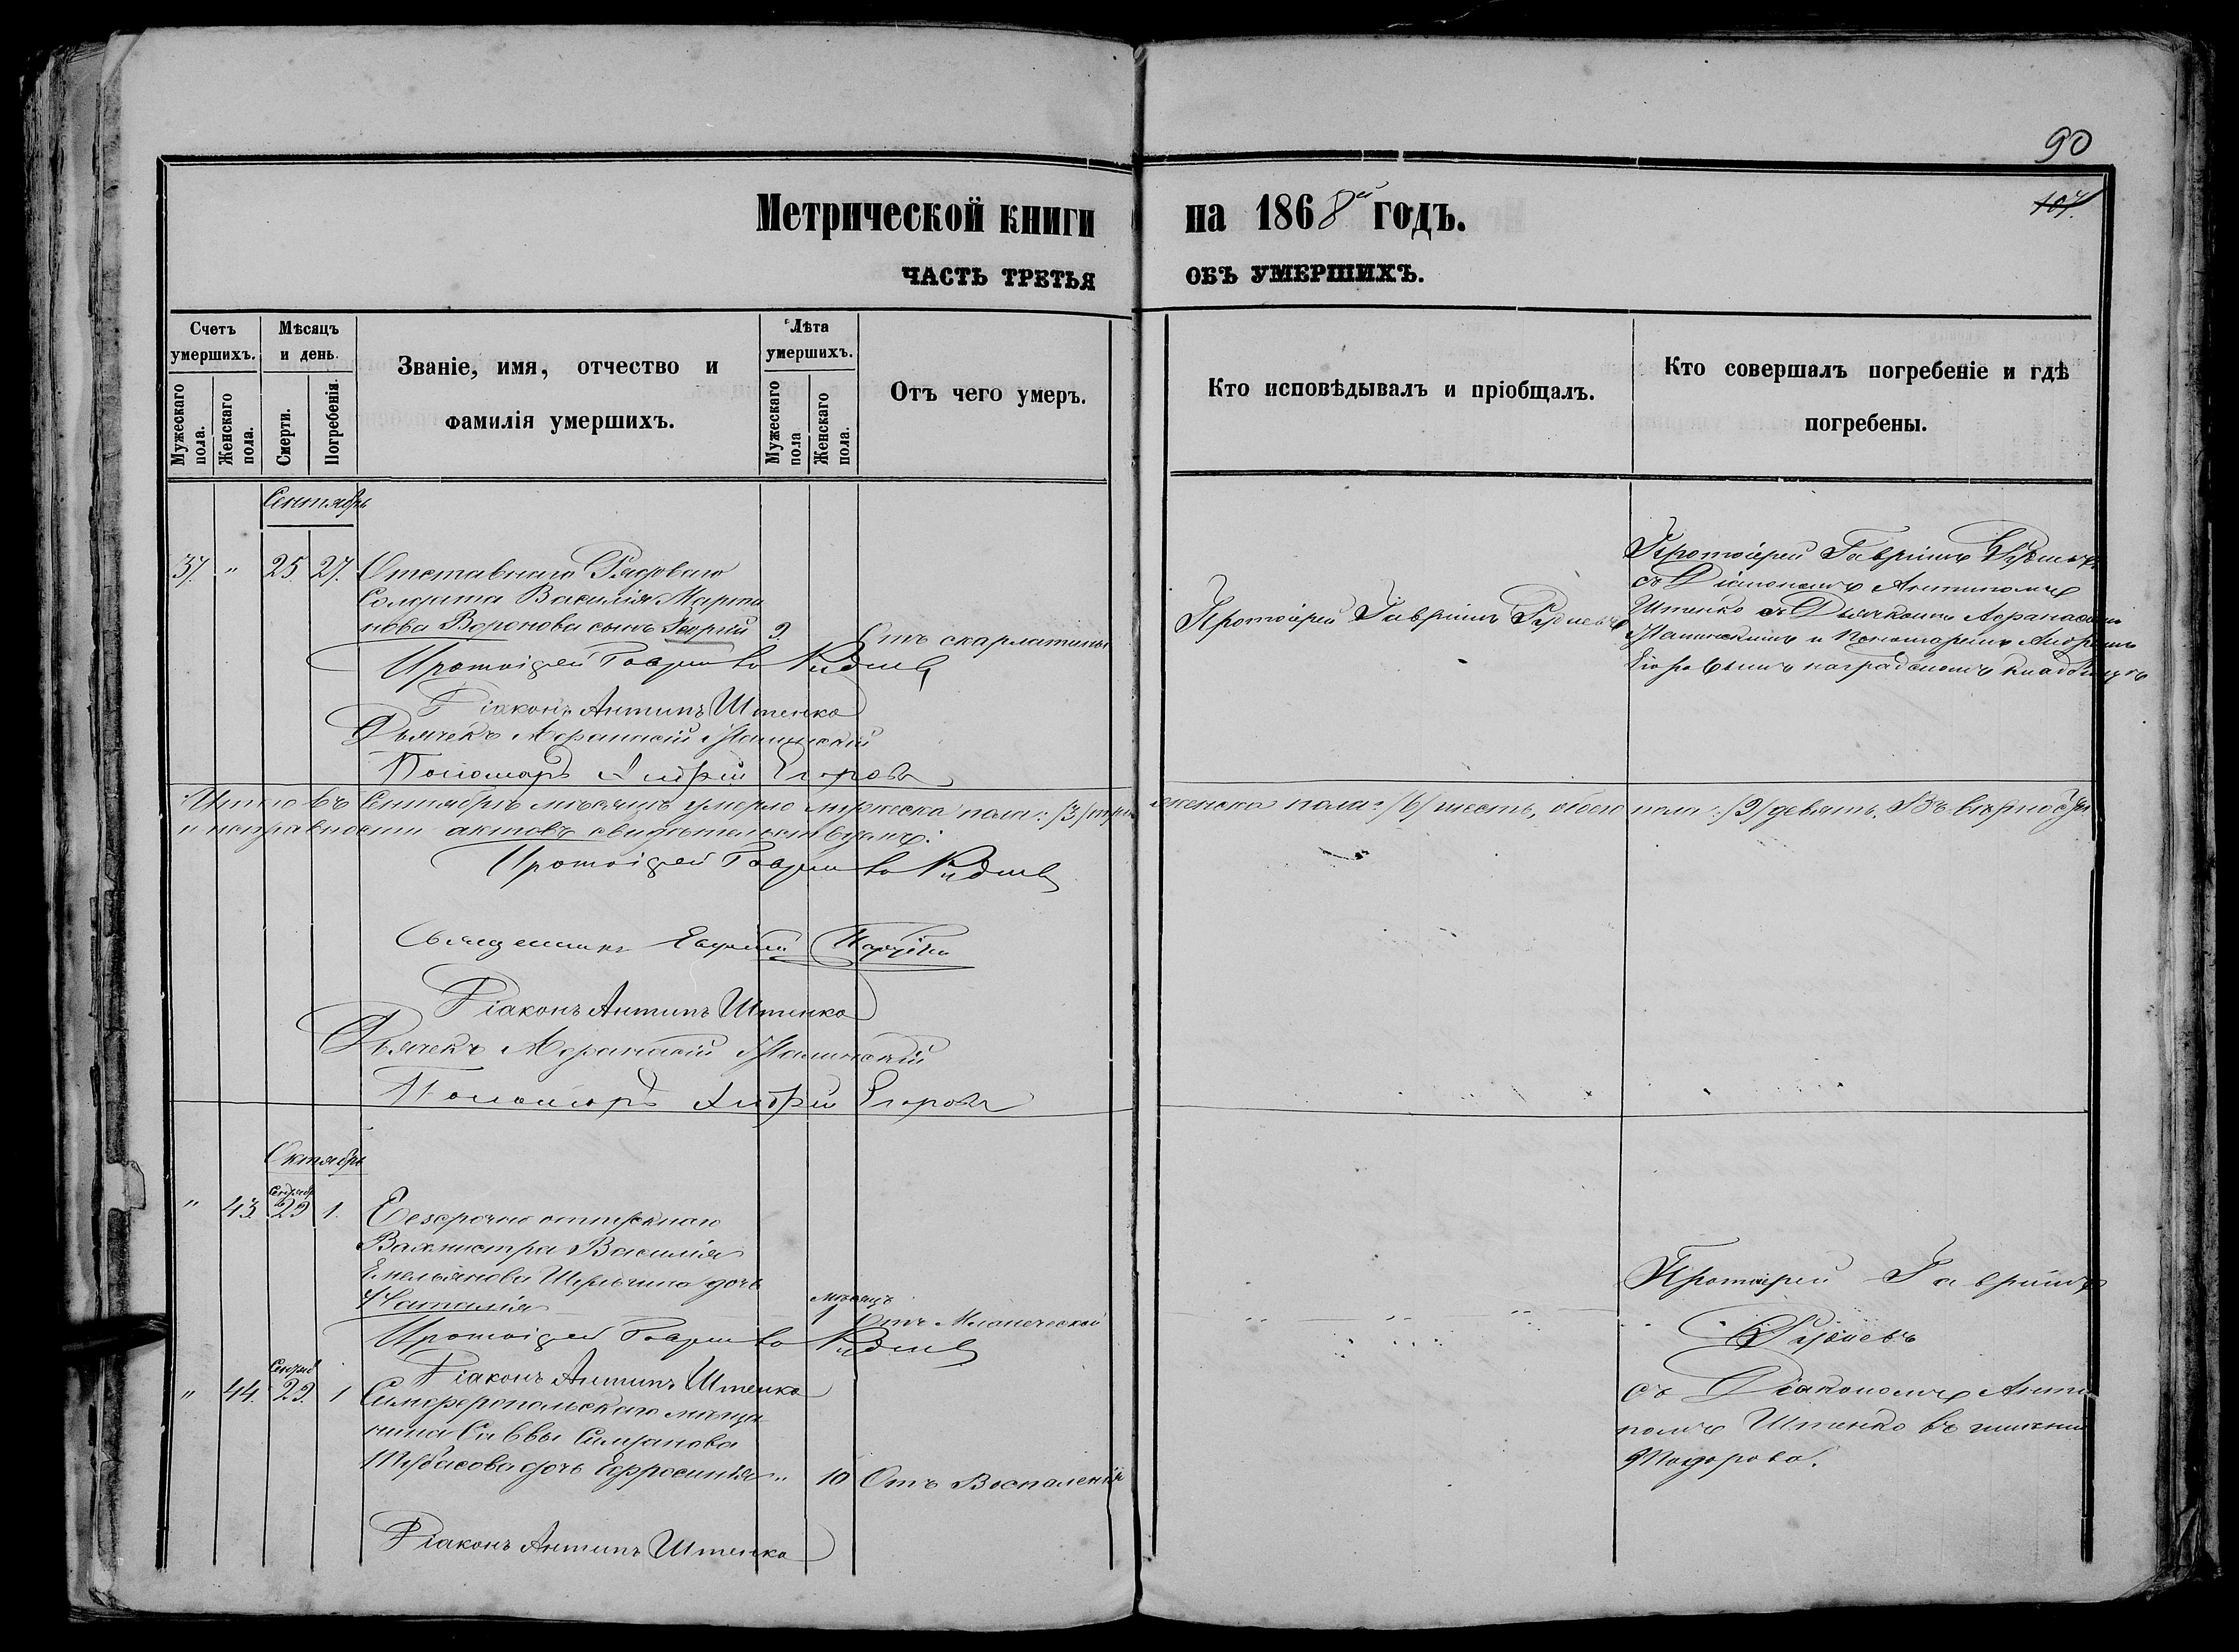 90
107.
Метрической книги на 1868й годъ.
ЧАСТЬ ТРЕТЬЯ ОБЪ УМЕРШИХЪ.
Счетъ умершихъ.
Мужескаго пола.
Женскаго пола.
Мѣсяцъ и день.
Смерти.
Погребенія.
Званіе, имя, отчество и
фамилія умершихъ.
Лѣта умершихъ.
Мужескаго пола
Женскаго пола.
Отъ чего умеръ.
Кто исповѣдывалъ и пріобщалъ.
Кто совершалъ погребеніе и гдѣ
погребены.
Сентябрь
37. " 25. 27. Отставнаго Рядоваго
Солдата Василія Марты
нова Воронова сынъ Георгій 9. Отъ скарлатины
Протоіерей Гавріилъ Рудневъ
Протоіерей Гавріилъ Руднев
съ Діакономъ Антипомъ
Штенко и Дьячкомъ Афанасіемъ
и Пономаремъ Андреемъ
Егоровымъ на градскомъ кладбищѣ
Протоіерей Гавріилъ Руднев
Діаконъ Антипъ Штенко
Дьячекъ Афанасій
Пономарь Андрей Егоровъ
Итого въ Сентябрѣ мѣсяцѣ умерло мужеска пола: /3/ три женска пола: /6/ шесть, обоего пола: /9/ девять. Въ вѣрности
и исправности актовъ свидѣтельствуемъ:
Протоіерей Гавріилъ Руднев
Священникъ
Діаконъ Антипъ Штенко
Дьячекъ Афанасій
Пономарь Андрей Егоровъ
Октябрь
Сентября
" 43. 29 1. Безсрочно отпускнаго
Вахмистра Василія
Емельянова дочь
Наталія
мѣсяцъ
1 Отъ
Протоіерей Гавріилъ Руднев
Діаконъ Антипъ Штенко
" 44. 29. 1 Симферопольскаго мѣща
нина Саввы
дочь Ефросинія " 10 Отъ Воспаленія
Діаконъ Антипъ Штенко
Протоіерей Гавріилъ
Рудневъ
съ Діакономъ Анти
помъ Штенко въ имѣніи